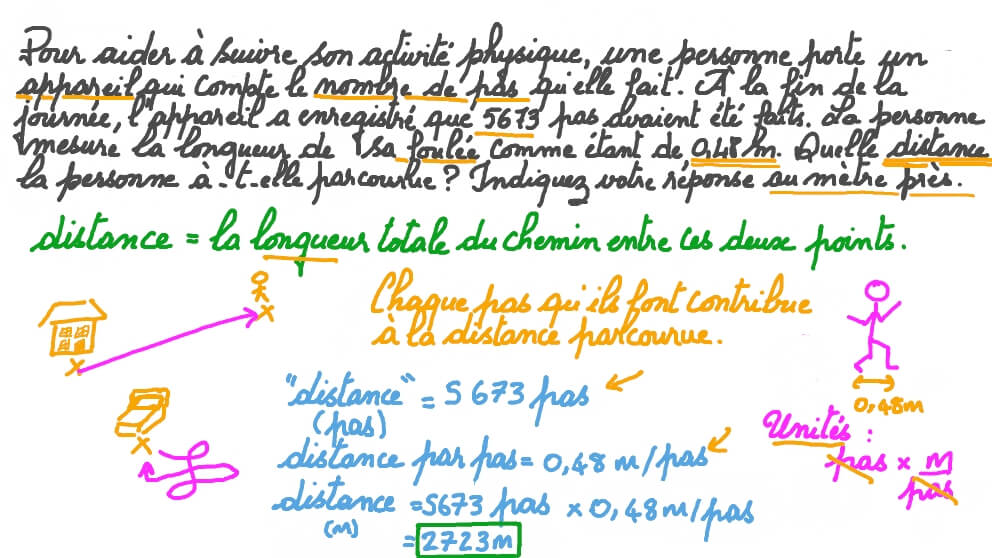 Pour aider à suivre son activité physique, une personne porte un
appareil qui compte le nombre de pas qu'elle fait. À la fin de la
journée, l'appareil a enregistré que 5673 pas avaient été faits. La personne
mesure la longueur de sa foulée comme étant de 0,48 m. Quelle distance
la personne à-t-elle parcourue ? Indiquez votre réponse au mètre près.
distance = la longueur totale du chemin entre ces deux points.
Chaque pas qu'ils font contribue
à la distance parcourue.
0,48m
"distance" = 5673 pas
(pas)
distance par pas = 0,48 m/pas
distance = 5673 pas × 0,48 m/pas
(m)
= 2723 m
Unités :
pas × m
pas